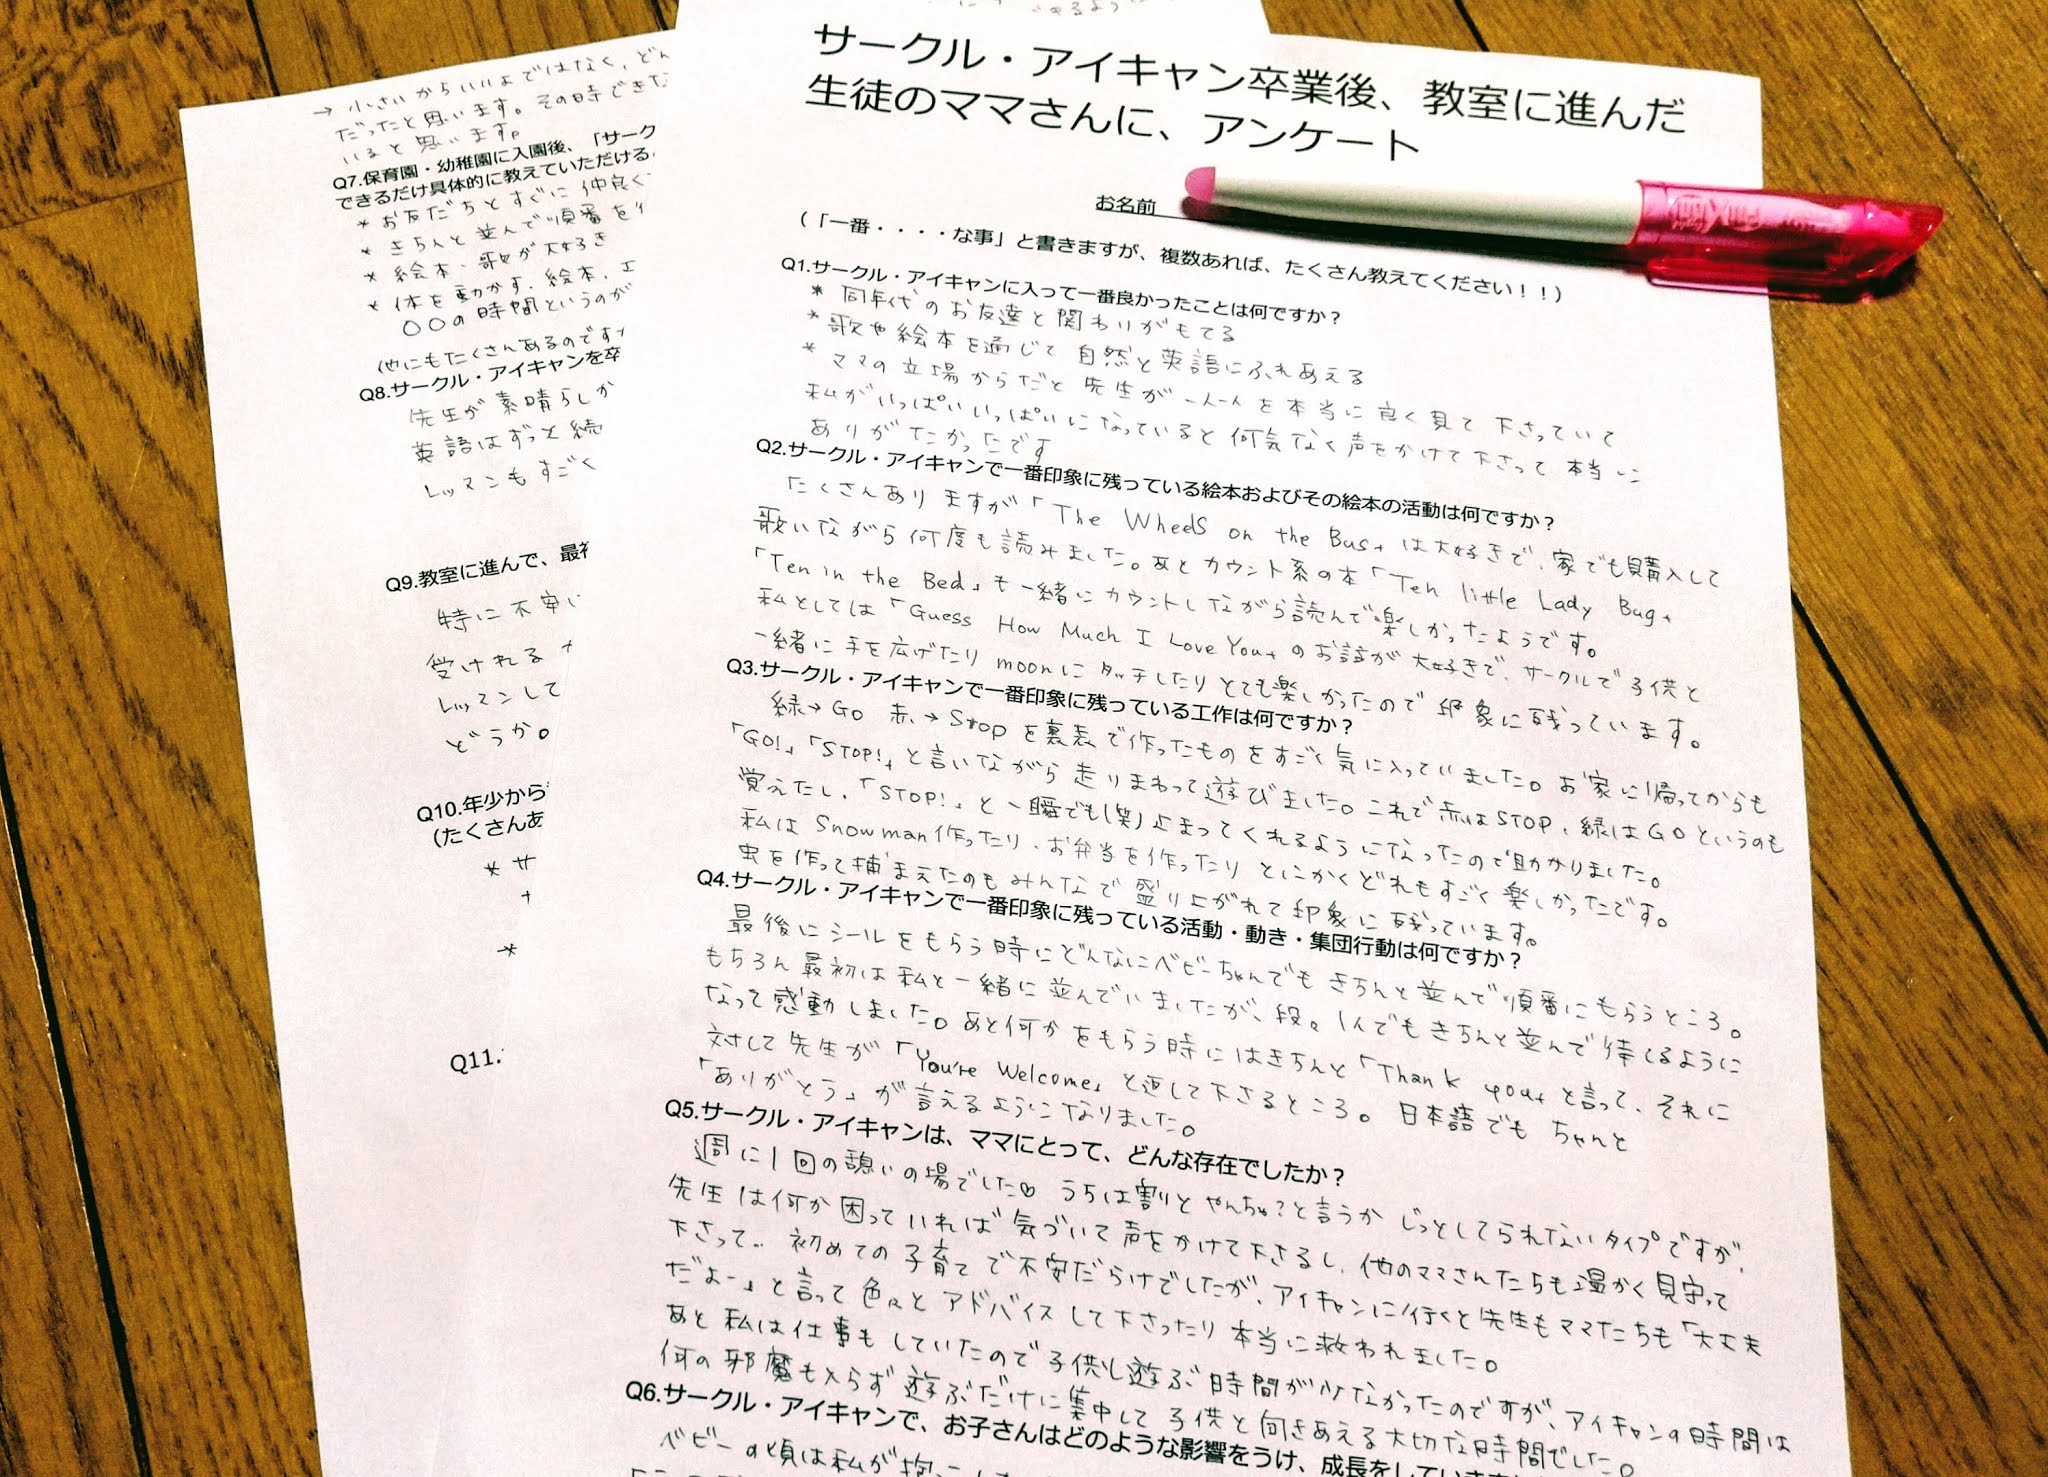 サークル・アイキャン卒業後、教室に進んだ
生徒のママさんに、アンケート
お名前
(「一番・・・・な事」と書きますが、複数あれば、たくさん教えてください！！)
Q1.サークル・アイキャンに入って一番良かったことは何ですか？
* 同年代のお友達と関わりがもてる
* 歌や絵本を通じて自然と英語にふれあえる
* ママの立場からだと先生が一人一人を本当に良く見て下さっていて
私がいっぱいいっぱいになっていると何気なく声をかけて下さって本当に
ありがたかったです
Q2.サークル・アイキャンで一番印象に残っている絵本およびその絵本の活動は何ですか？
たくさんありますが「The Wheels on the Bus」は大好きで、家でも購入して
歌いながら何度も読みました。あとカウント系の本「Ten little Lady Bug」
「Ten in the Bed」も一緒にカウントしながら読んで楽しかったようです。
私としては「Guess How Much I Love You」のお話が大好きで、サークルで子供と
一緒に手を広げたりmoonにタッチしたりとても楽しかったので印象に残っています。
Q3.サークル・アイキャンで一番印象に残っている工作は何ですか？
緑→GO 赤→Stopを裏表で作ったものをすごく気に入っていました。お家に帰ってからも
「GO!」「STOP!」と言いながら走りまわって遊びました。これで赤はSTOP、緑はGOというのも
覚えたし、「STOP!」と一瞬でも(笑)止まってくれるようになったので助かりました。
私はSnowman作ったり、お弁当を作ったりとにかくどれもすごく楽しかったです。
虫を作って捕まえたのもみんなで盛り上がれて印象に残っています。
Q4.サークル・アイキャンで一番印象に残っている活動・動き・集団行動は何ですか？
最後にシールをもらう時にどんなにベビーちゃんでもきちんと並んで順番にもらうところ。
もちろん最初は私と一緒に並んでいましたが、段々1人でもきちんと並んで待てるように
なって感動しました。あと何かをもらう時にはきちんと「Thank you」と言って、それに
対して先生が「You're Welcome」と返して下さるところ。日本語でもちゃんと
「ありがとう」が言えるようになりました。
Q5.サークル・アイキャンは、ママにとって、どんな存在でしたか？
週に1回の憩いの場でした♡ うちは割りとやんちゃ?と言うかじっとしてられないタイプですが、
先生は何か困っていれば気づいて声をかけて下さるし、他のママさんたちも温かく見守って
下さって、初めての子育てで不安だらけでしたが、アイキャンに行くと先生もママたちも「大丈夫
だよー」と言って色々とアドバイスして下さったり本当に救われました。
あと私は仕事もしていたので子供と遊ぶ時間が少なかったのですが、アイキャンの時間は
何の邪魔も入らず遊ぶだけに集中して子供と向きあえる大切な時間でした。
Q6.サークル・アイキャンで、お子さんはどのような影響をうけ、成長をしていきま
ベビーの頃は私が抱っこ
→ 小さいからいいよではなく、どん
だったと思います。その時できな
いると思います。
Q7.保育園・幼稚園に入園後、「サーク
できるだけ具体的に教えていただける
* お友だちとすぐに仲良く
* きちんと並んで順番を
* 絵本・歌が大好き
* 体を動かす、絵本、工
〇〇の時間というのが
(他にもたくさんあるのです
Q8.サークル・アイキャンを卒
先生が素晴らしか
英語はずっと続
レッスンもすごく
Q9.教室に進んで、最初
特に不安
受けれる
レッスンして
どうか。
Q10.年少から
(たくさんあ
* サ
*
Q11.